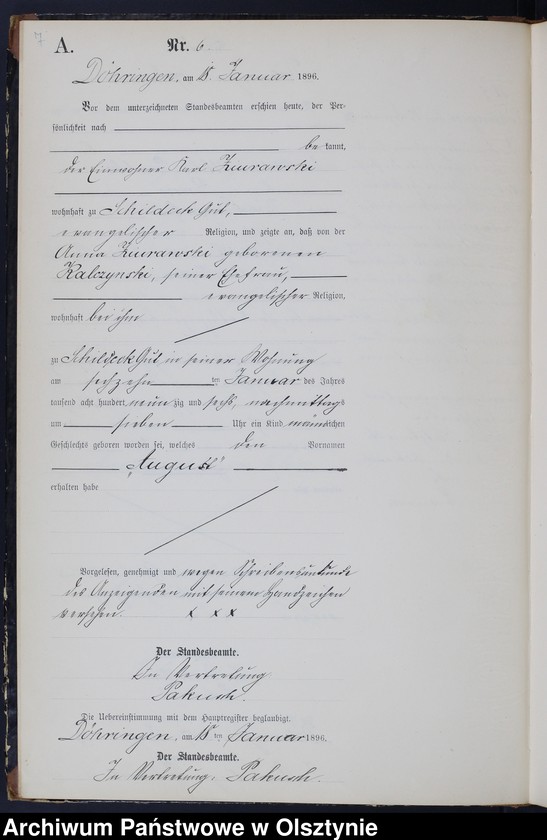 7
A.
Nr. 6
Döhringen, am 18. Januar 1896.
Vor dem unterzeichneten Standesbeamten erschien heute, der Per-
sönlichkeit nach
be kannt,
der Einwohner Karl Zmurawski
wohnhaft zu Schildeck Gut,
evangelischer Religion, und zeigte an, daß von der
Anna Zmurawski geborenen
Kalczynski, seiner Ehefrau,
evangelischer Religion,
wohnhaft bei ihm
zu Schildeck Gut in seiner Wohnung
am sechzehn ten Januar des Jahres
tausend acht hundert neun zig und sechs, nachmittags
um sieben Uhr ein Kind männlichen
Geschlechts geboren worden sei, welches den Vornamen
„August“
erhalten habe
Vorgelesen, genehmigt und wegen Schreibensunkunde
des Anzeigenden mit seinem Handzeichen
versehen. x x x
Der Standesbeamte.
In Vertretung
Die Uebereinstimmung mit dem Hauptregister beglaubigt.
Döhringen, am 18 ten Januar 1896.
Der Standesbeamte.
In Vertretung.
Archiwum Państwowe w Olsztynie